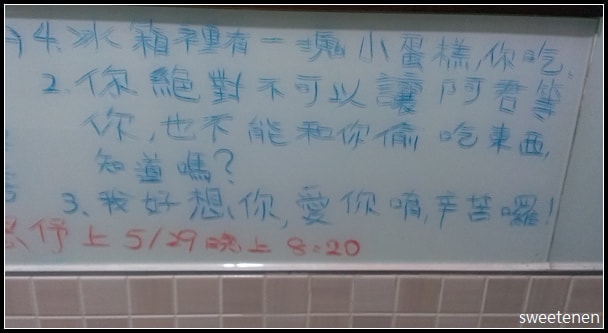 4. 冰箱裡有一塊小蛋糕,你吃.
2. 你絕對不可以讓阿君等
你,也不能和你偷吃東西,
知道嗎?
3. 我好想你,愛你唷,辛苦囉!
上 5/29 晚上 8:20
sweetenen